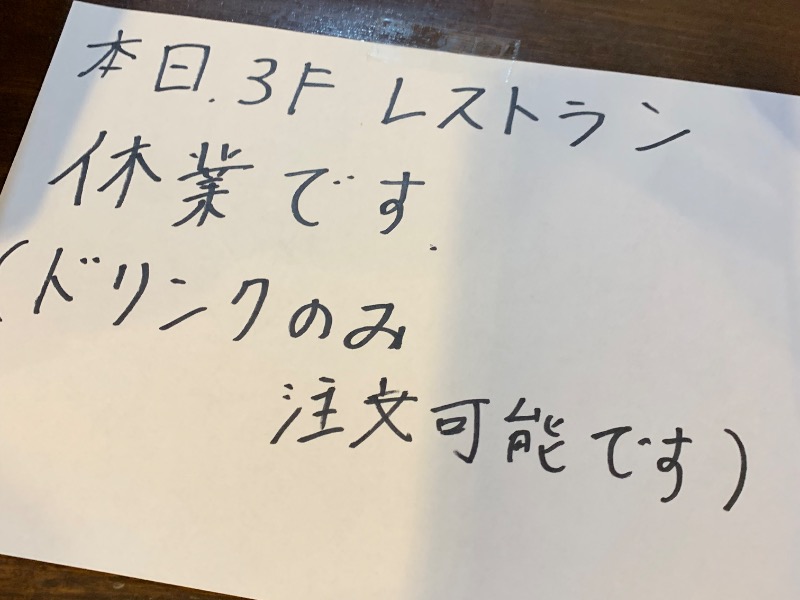 本日.3F レストラン
休業です.
(ドリンクのみ
注文可能です)